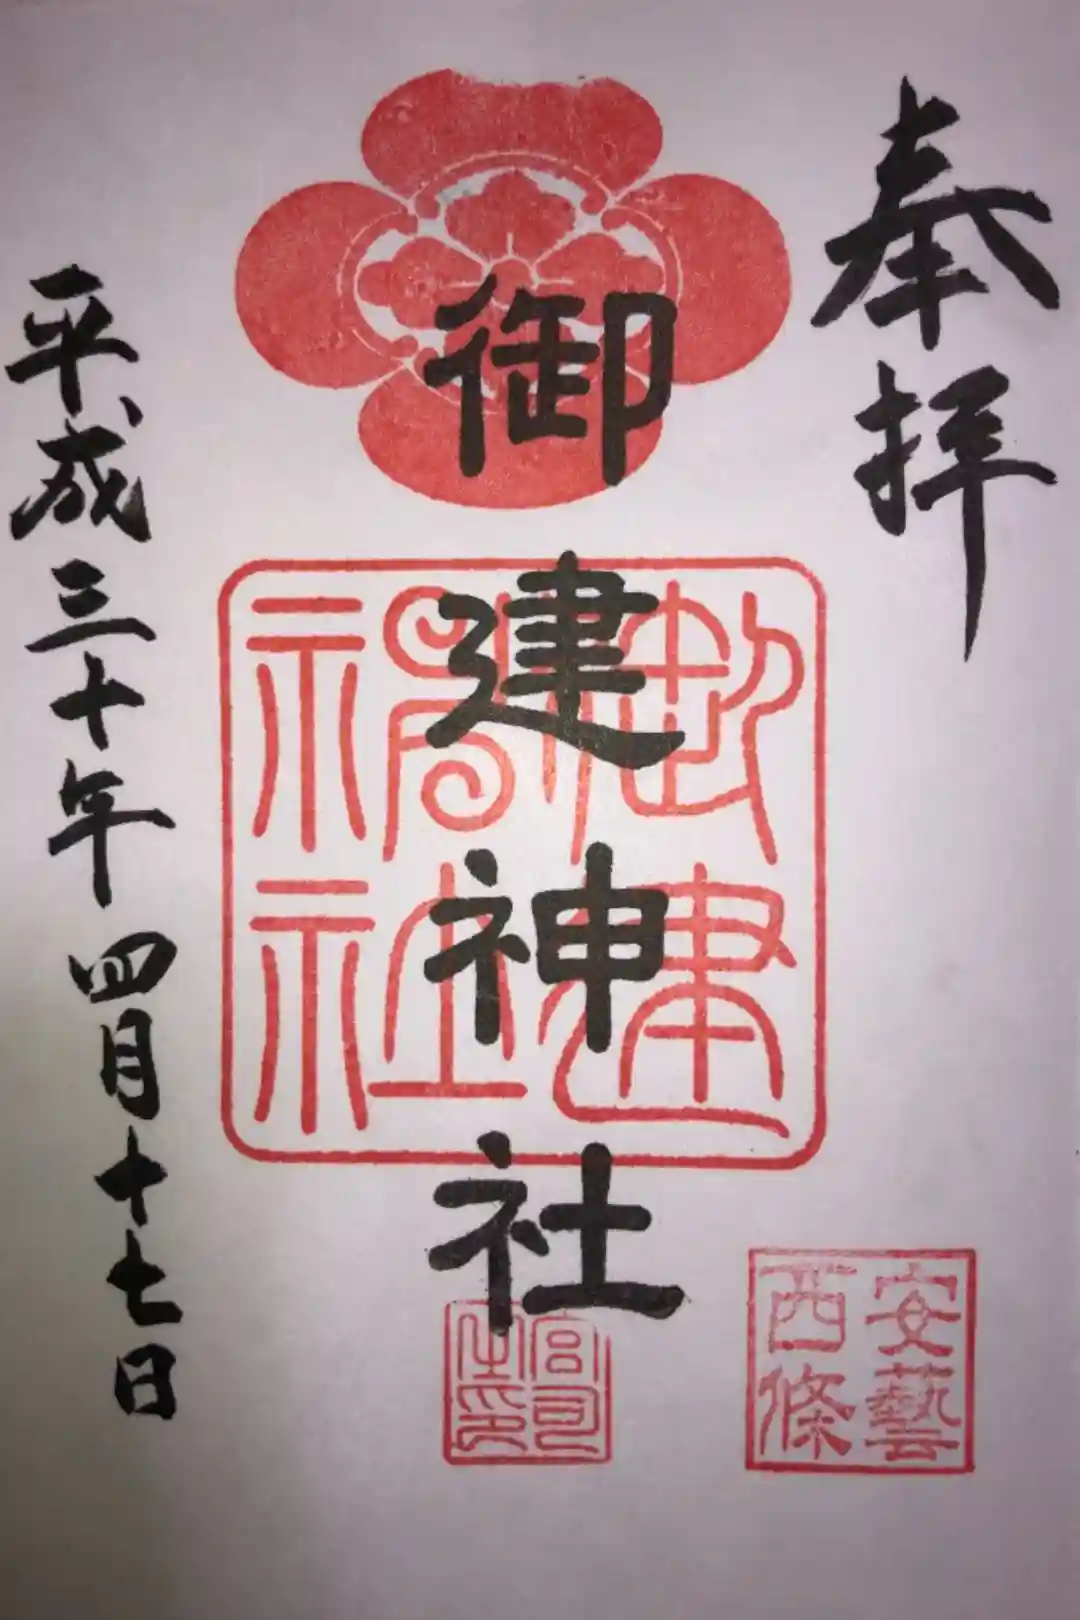 奉拝
御建神社
御建神社
宮司之印
安藝西條
平成三十年四月十七日